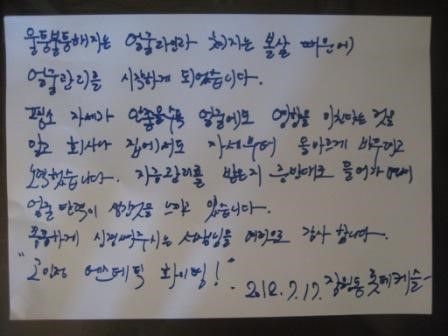 울퉁불퉁해지는 얼굴라인과 쳐지는 볼살 때문에
얼굴관리를 시작하게 되었습니다.
평소 자세가 안좋을수록 얼굴에도 영향을 미친다는 것을
알고 회사나 집에서도 자세부터 올바르게 바꾸려고
노력했습니다. 지금관리를 받은지 중반대로 들어가면서
얼굴 탄력이 생긴것을 느끼고 있습니다.
꼼꼼하게 신경써주시는 선생님들 여러모로 감사 합니다.
에스테틱 화이팅!"
2012. 7. 17. 장원동 롯데캐슬-